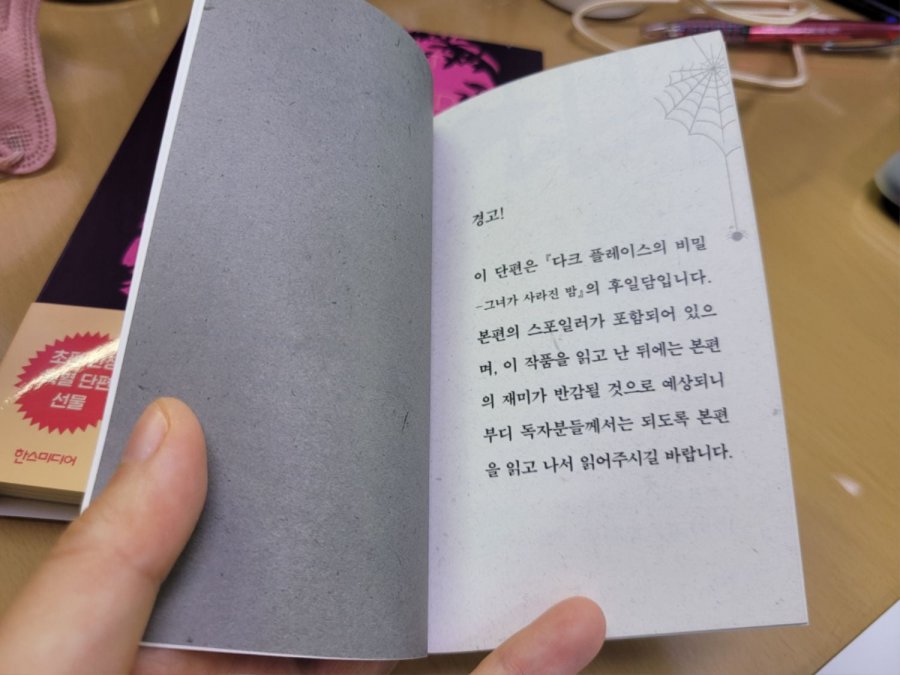 경고!
이 단편은 『다크 플레이스의 비밀
-그녀가 사라진 밤』의 후일담입니다.
본편의 스포일러가 포함되어 있으
며, 이 작품을 읽고 난 뒤에는 본편
의 재미가 반감될 것으로 예상되니
부디 독자분들께서는 되도록 본편
을 읽고 나서 읽어주시길 바랍니다.
단편
선물
한스미디어